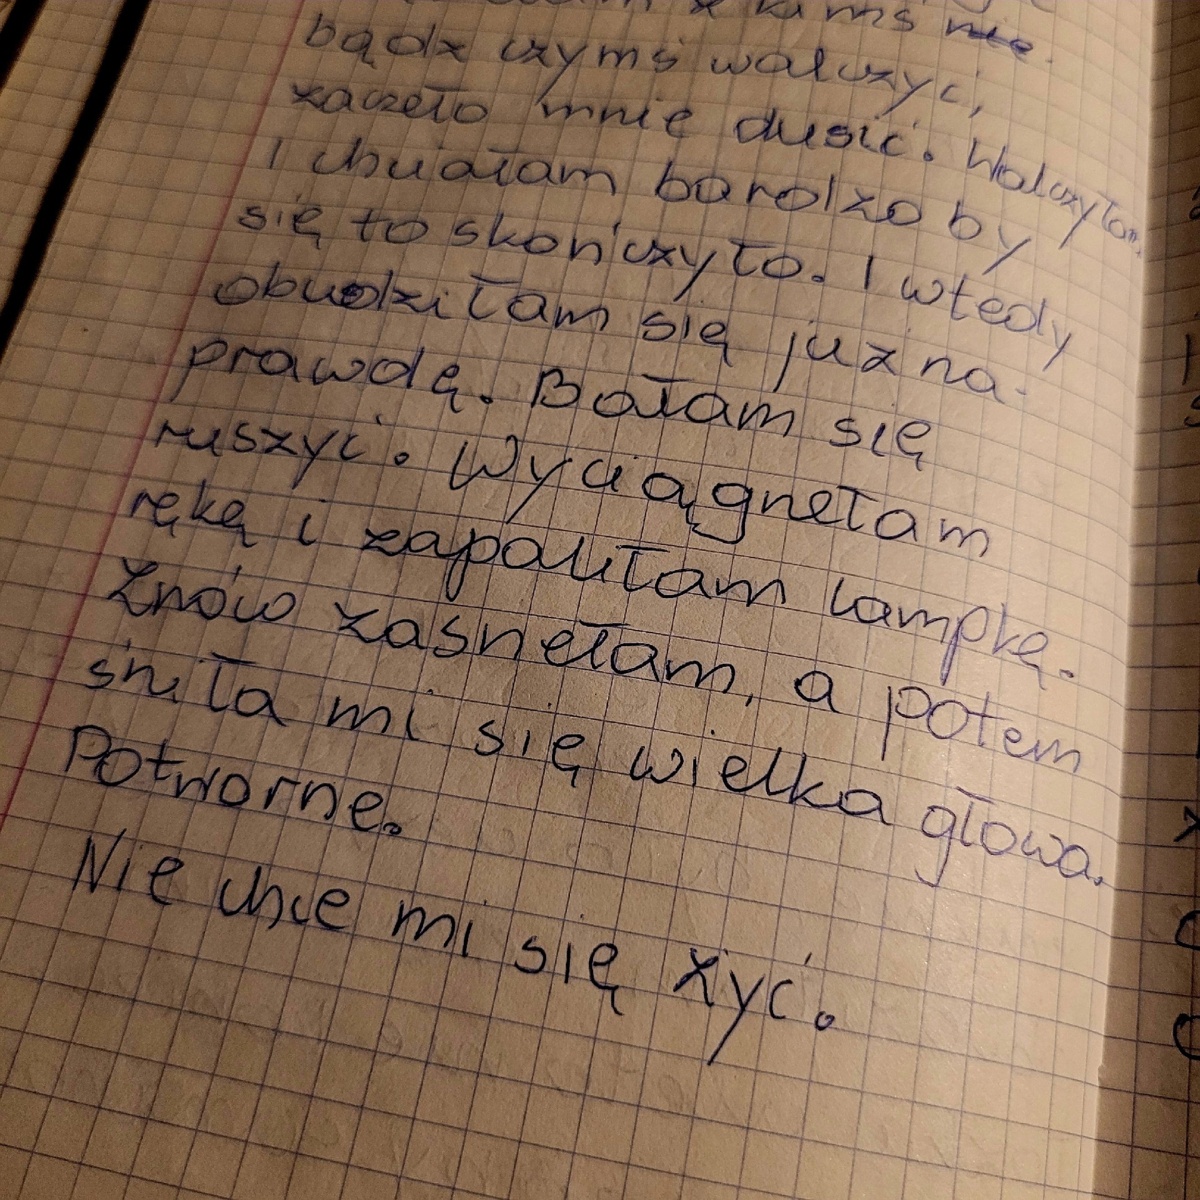 z kimś nie
bądz czymś walczyć,
zaczeło mnie dusić. Walczyłam
I chciałam bardzo by
się to skończyło. I wtedy
obudziłam się już na-
prawdę. Bałam się
ruszyć. Wyciągnełam
rękę i zapaliłam lampkę.
Znów zasnełam, a potem
śniła mi się wielka głowa.
Potworne.
Nie chce mi się żyć.